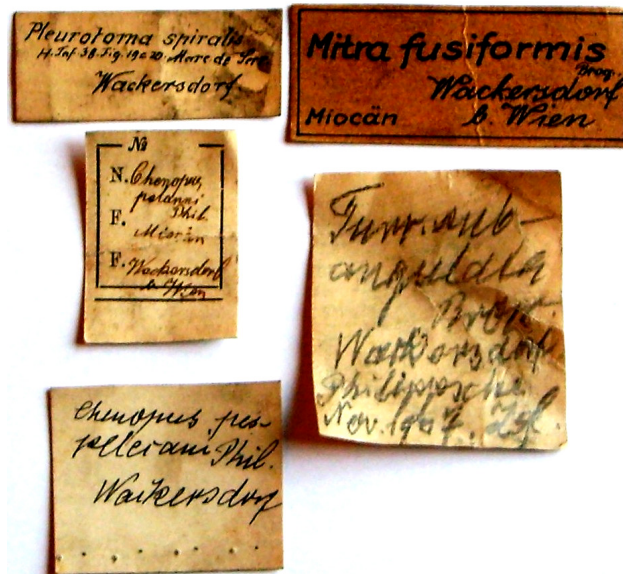 Pleurotoma spiralis
H. Taf 38. Fig. 19 e 20. Marc de Serr
Wackersdorf
Mitra fusiformis
Brog.
Wackersdorf
Miocän b. Wien
No
N. Chenopus
pelecani
F. Phil.
Miocän
F. Wackersdorf
b. Wien
Turr. sub-
angulata
Brocc.
Wackersdorf
Philippsche
Nov. 1967.
Chenopus pes-
pelecani Phil.
Wackersdorf